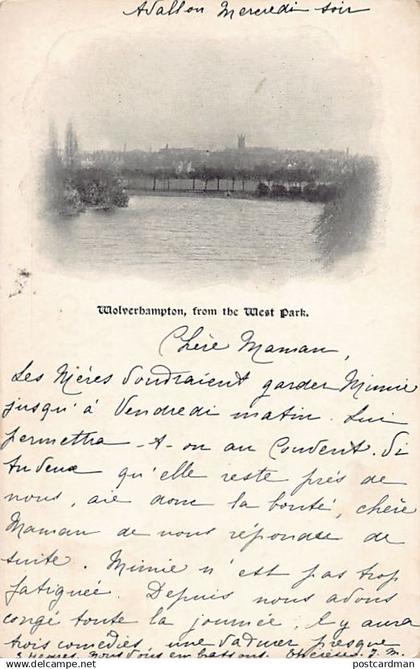 Avallon Mercredi soir
Wolverhampton, from the West Park.
Chère Maman,
Les Mères voudraient garder Mimie
jusqu'à Vendredi matin. Lui
permettra-t-on au Couvent. Si
tu veux qu'elle reste près de
nous, aie donc la bonté, chère
Maman de nous répondre de
suite. Mimie n'est pas trop
fatiguée. Depuis nous avons
congé toute la journée; il y aura
trois comédies, une va durer presque
2 heures. nous vous embrassons. J. M.
postcardman
delcampe.net